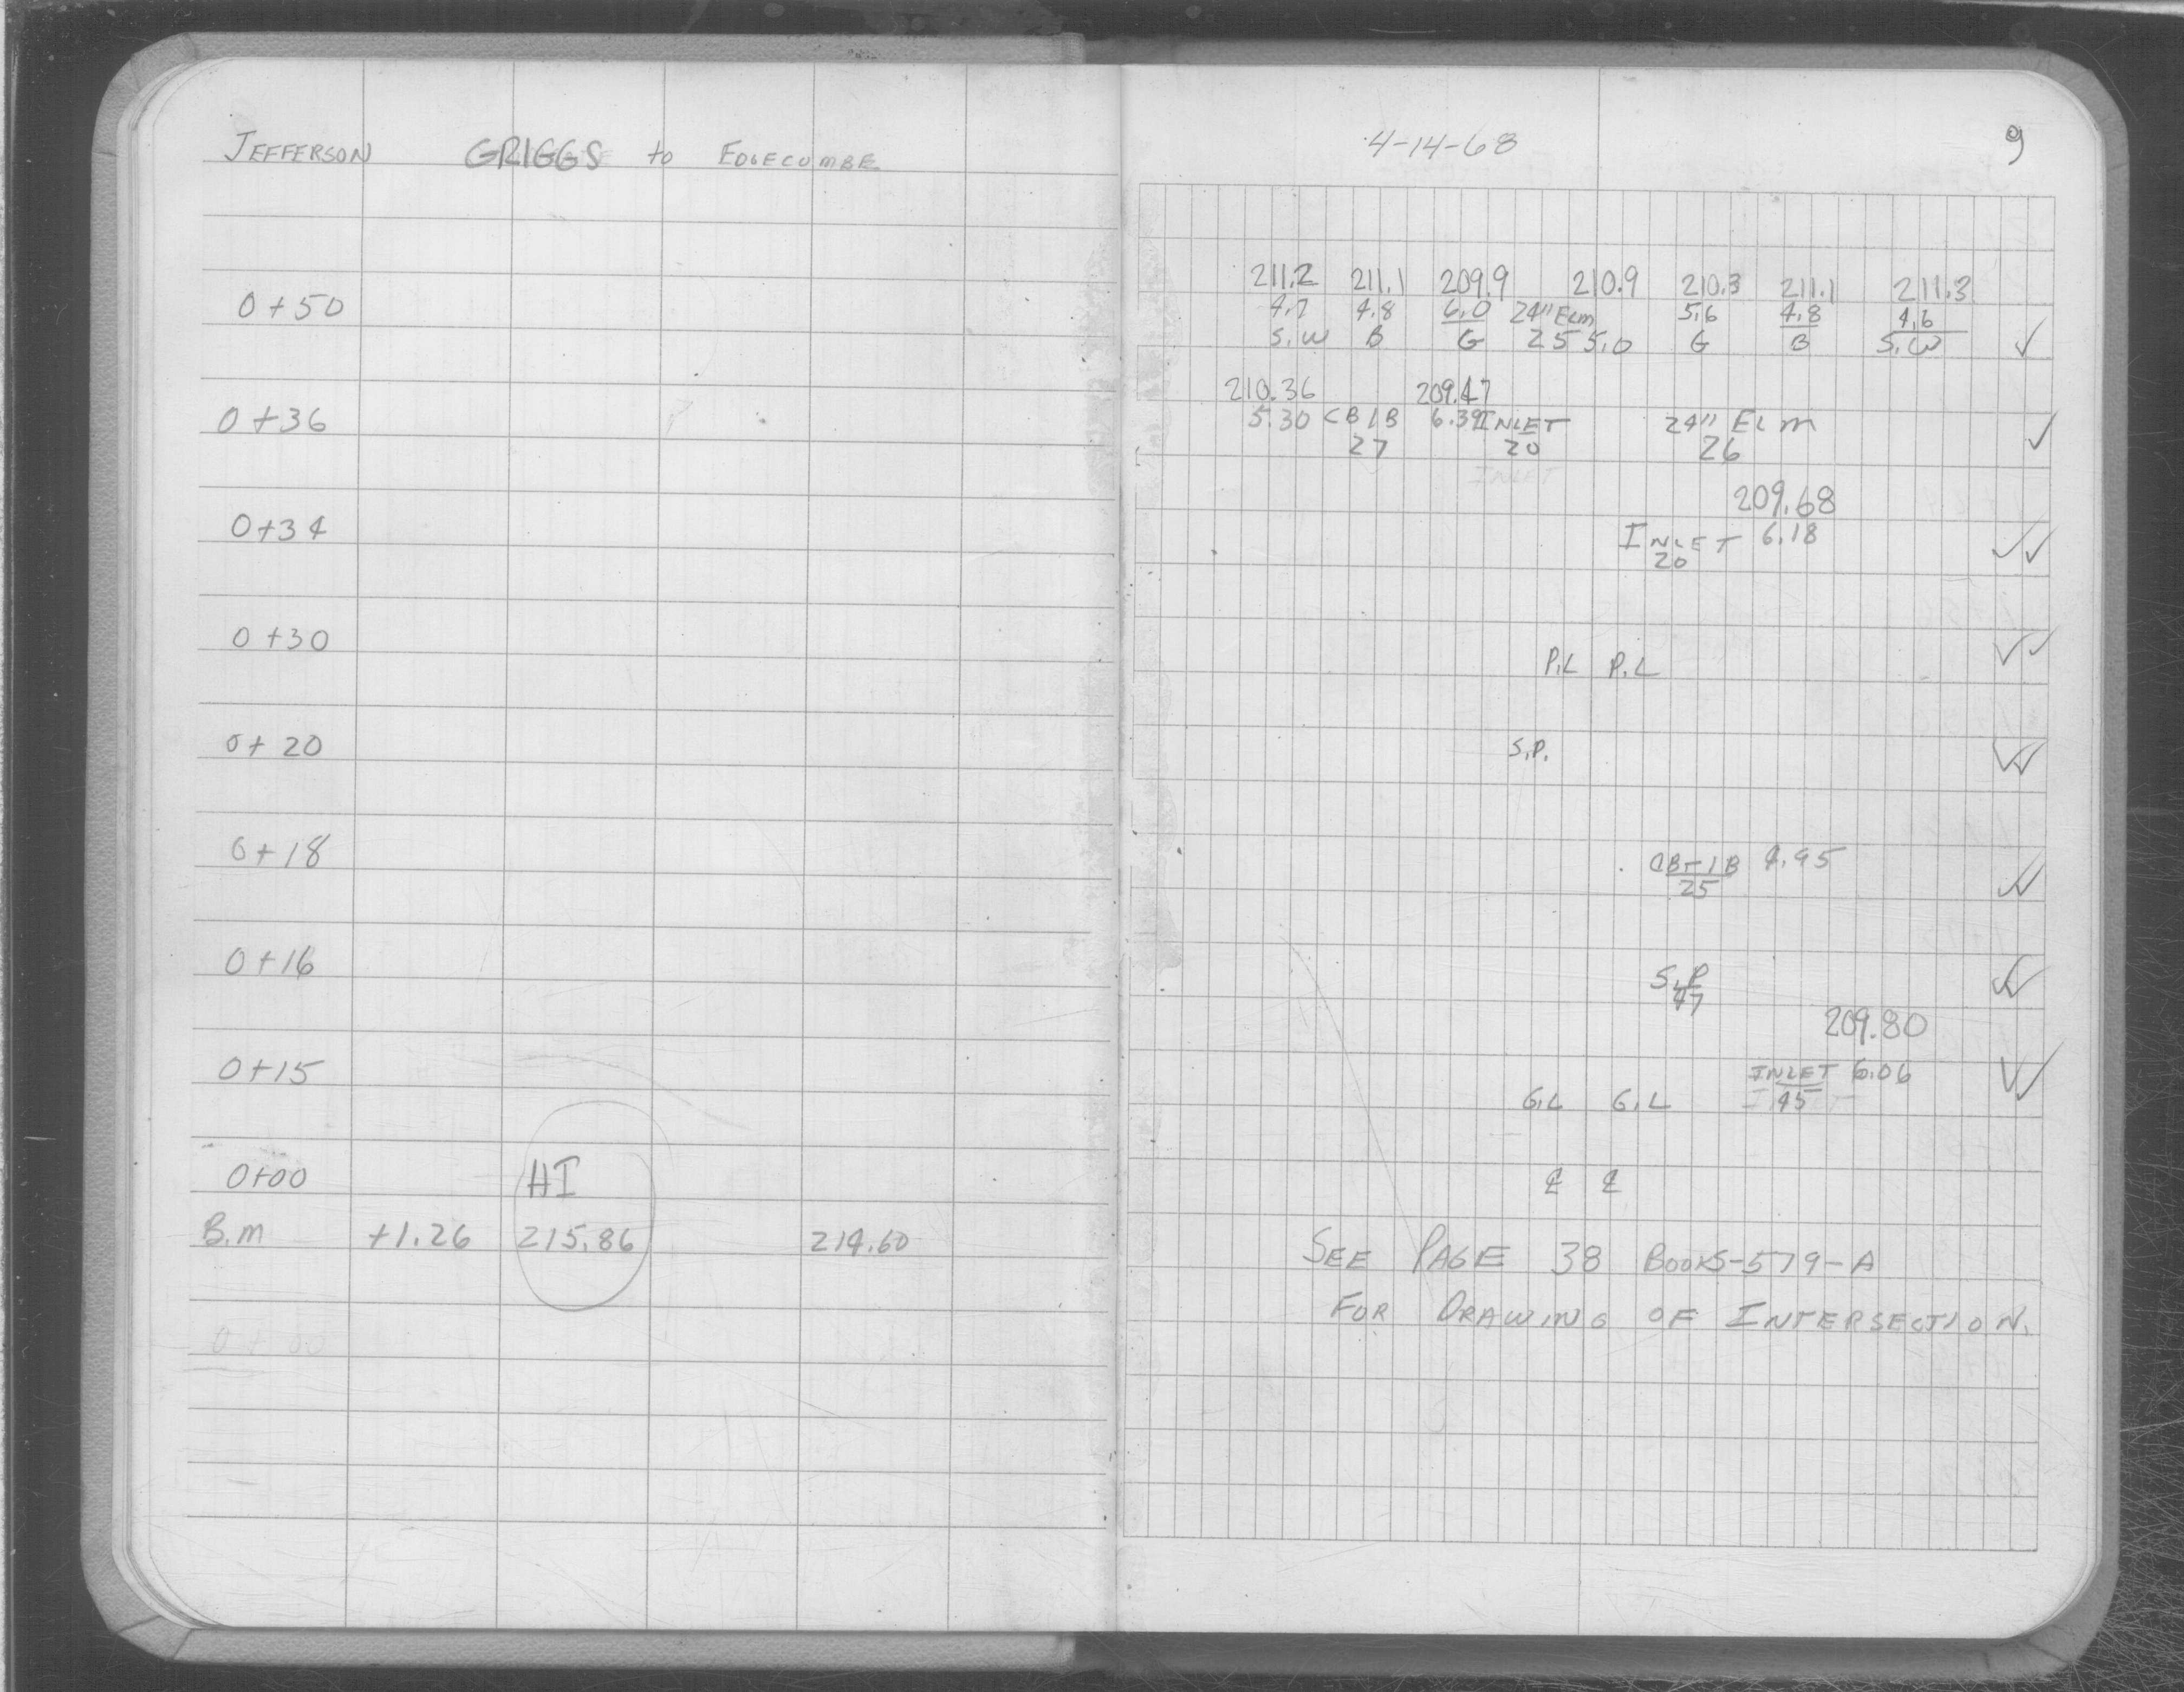 JEFFERSON GRIGGS to EDGECUMBE 4-14-68 9
211.2 211.1 209.9 210.9 210.3 211.1 211.3
0+50 4.7 4.8 6.0 24" ELM 5.6 4.8 4.6
S.W B G 25 5.0 G B S.W ✓
210.36 209.47
0+36 5.30 CB1B 6.39 INLET 24" ELM ✓
27 20 26
INLET
209.68
0+34 INLET 6.18 ✓✓
20
0+30 P.L P.L ✓✓
0+20 S.P. ✓✓
0+18 CB-1B 4.95 ✓✓
25
0+16 S.P ✓✓
47
209.80
0+15 INLET 6.06 ✓✓
G.L G.L 45
0+00 HI ℄ ℄
B.M +1.26 215.86 214.60 SEE PAGE 38 BOOKS-579-A
FOR DRAWING OF INTERSECTION.
0+00